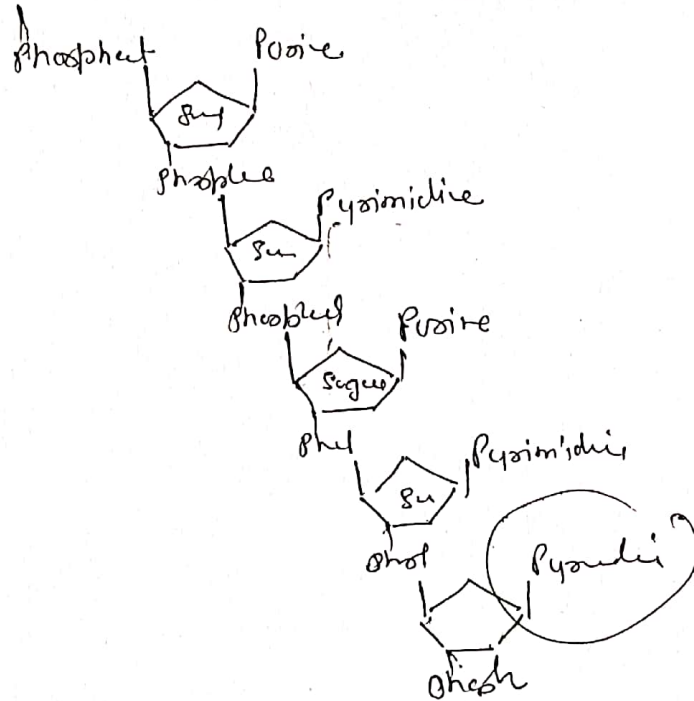 Phosphat Purine
Sug
Phosphe
Pyrimidine
Su
Phosphet Purine
Sugar
Phel Pyrimidi
Su
Phof Pyrudi
Phosph